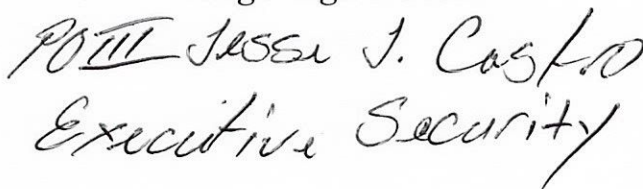 POIII Jesse J. Castro
Executive Security